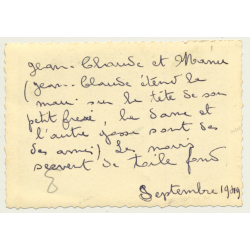 Jean-Claude et Manu
(Jean-Claude étend la
main sur la tête de son
petit frère, la dame et
l'autre gosse sont des
des amies) Les murs
servent de toile fond
Septembre 1949